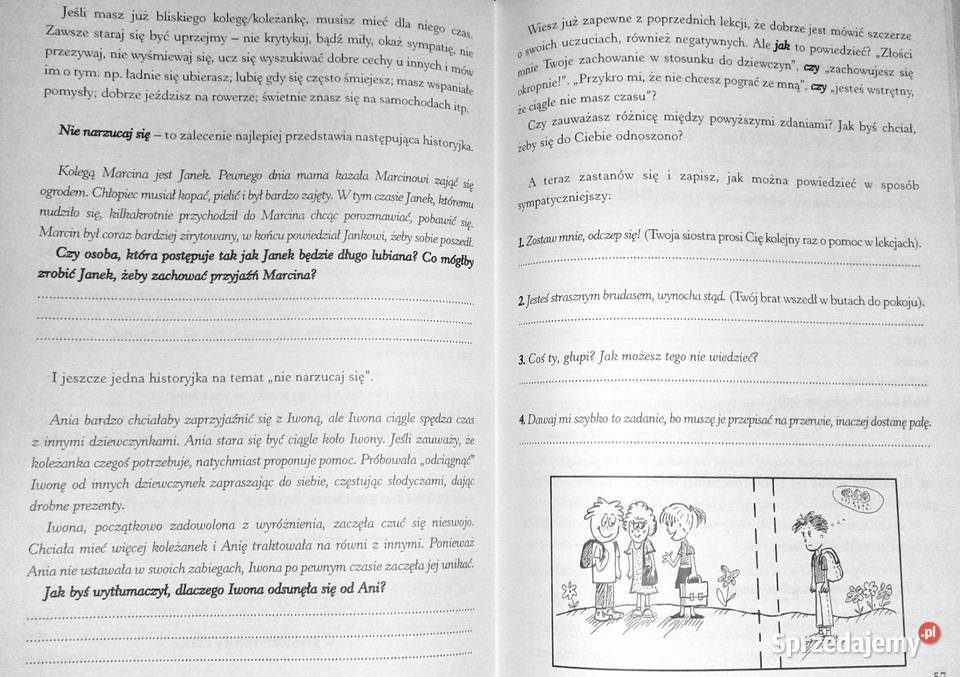 Jeśli masz już bliskiego kolegę/koleżankę, musisz mieć dla niego czas.
Zawsze staraj się być uprzejmy – nie krytykuj, bądź miły, okaż sympatię, nie
przezywaj, nie wyśmiewaj się, ucz się wyszukiwać dobre cechy u innych i mów
im o tym: np. ładnie się ubierasz; lubię gdy się często śmiejesz; masz wspaniałe
pomysły; dobrze jeździsz na rowerze; świetnie znasz się na samochodach itp.
Nie narzucaj się – to zalecenie najlepiej przedstawia następująca historyjka.
Kolegą Marcina jest Janek. Pewnego dnia mama kazała Marcinowi zająć się
ogrodem. Chłopiec musiał kopać, pielić i był bardzo zajęty. W tym czasie Janek, któremu
nudziło się, kilkakrotnie przychodził do Marcina chcąc porozmawiać, pobawić się.
Marcin był coraz bardziej zirytowany, w końcu powiedział Jankowi, żeby sobie poszedł.
Czy osoba, która postępuje tak jak Janek będzie długo lubiana? Co mógłby
zrobić Janek, żeby zachować przyjaźń Marcina?
I jeszcze jedna historyjka na temat „nie narzucaj się”.
Ania bardzo chciałaby zaprzyjaźnić się z Iwoną, ale Iwona ciągle spędza czas
z innymi dziewczynkami. Ania stara się być ciągle koło Iwony. Jeśli zauważy, że
koleżanka czegoś potrzebuje, natychmiast proponuje pomoc. Próbowała „odciągnąć”
Iwonę od innych dziewczynek zapraszając do siebie, częstując słodyczami, dając
drobne prezenty.
Iwona, początkowo zadowolona z wyróżnienia, zaczęła czuć się nieswojo.
Chciała mieć więcej koleżanek i Anię traktowała na równi z innymi. Ponieważ
Ania nie ustawała w swoich zabiegach, Iwona po pewnym czasie zaczęła jej unikać.
Jak byś wytłumaczył, dlaczego Iwona odsunęła się od Ani?
Wiesz już zapewne z poprzednich lekcji, że dobrze jest mówić szczerze
o swoich uczuciach, również negatywnych. Ale jak to powiedzieć? „Złości
mnie Twoje zachowanie w stosunku do dziewczyn”, czy „zachowujesz się
okropnie!”. „Przykro mi, że nie chcesz pograć ze mną”, czy „jesteś wstrętny,
że ciągle nie masz czasu”?
Czy zauważasz różnicę między powyższymi zdaniami? Jak byś chciał,
żeby się do Ciebie odnoszono?
A teraz zastanów się i zapisz, jak można powiedzieć w sposób
sympatyczniejszy:
1. Zostaw mnie, odczep się! (Twoja siostra prosi Cię kolejny raz o pomoc w lekcjach).
2. Jesteś strasznym brudasem, wynocha stąd. (Twój brat wszedł w butach do pokoju).
3. Coś ty, głupi? Jak możesz tego nie wiedzieć?
4. Dawaj mi szybko to zadanie, bo muszę je przepisać na przerwie, inaczej dostanę pałę.
Sprzedajemy.pl
57